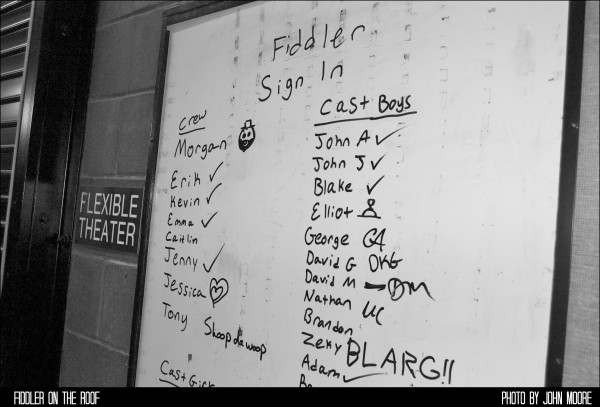 Fiddler
Sign In
Crew
Morgan
Erik ✓
Kevin ✓
Emma ✓
Caitlin
Jenny ✓
Jessica
Tony Shoop da woop
Cast Girls
Cast Boys
John A ✓
John J ✓
Blake ✓
Elliot
George
David G DKG
David M DM
Nathan
Brandon
Zeky BLARG!!
Adam ✓
FLEXIBLE
THEATER
FIDDLER ON THE ROOF
PHOTO BY JOHN MOORE